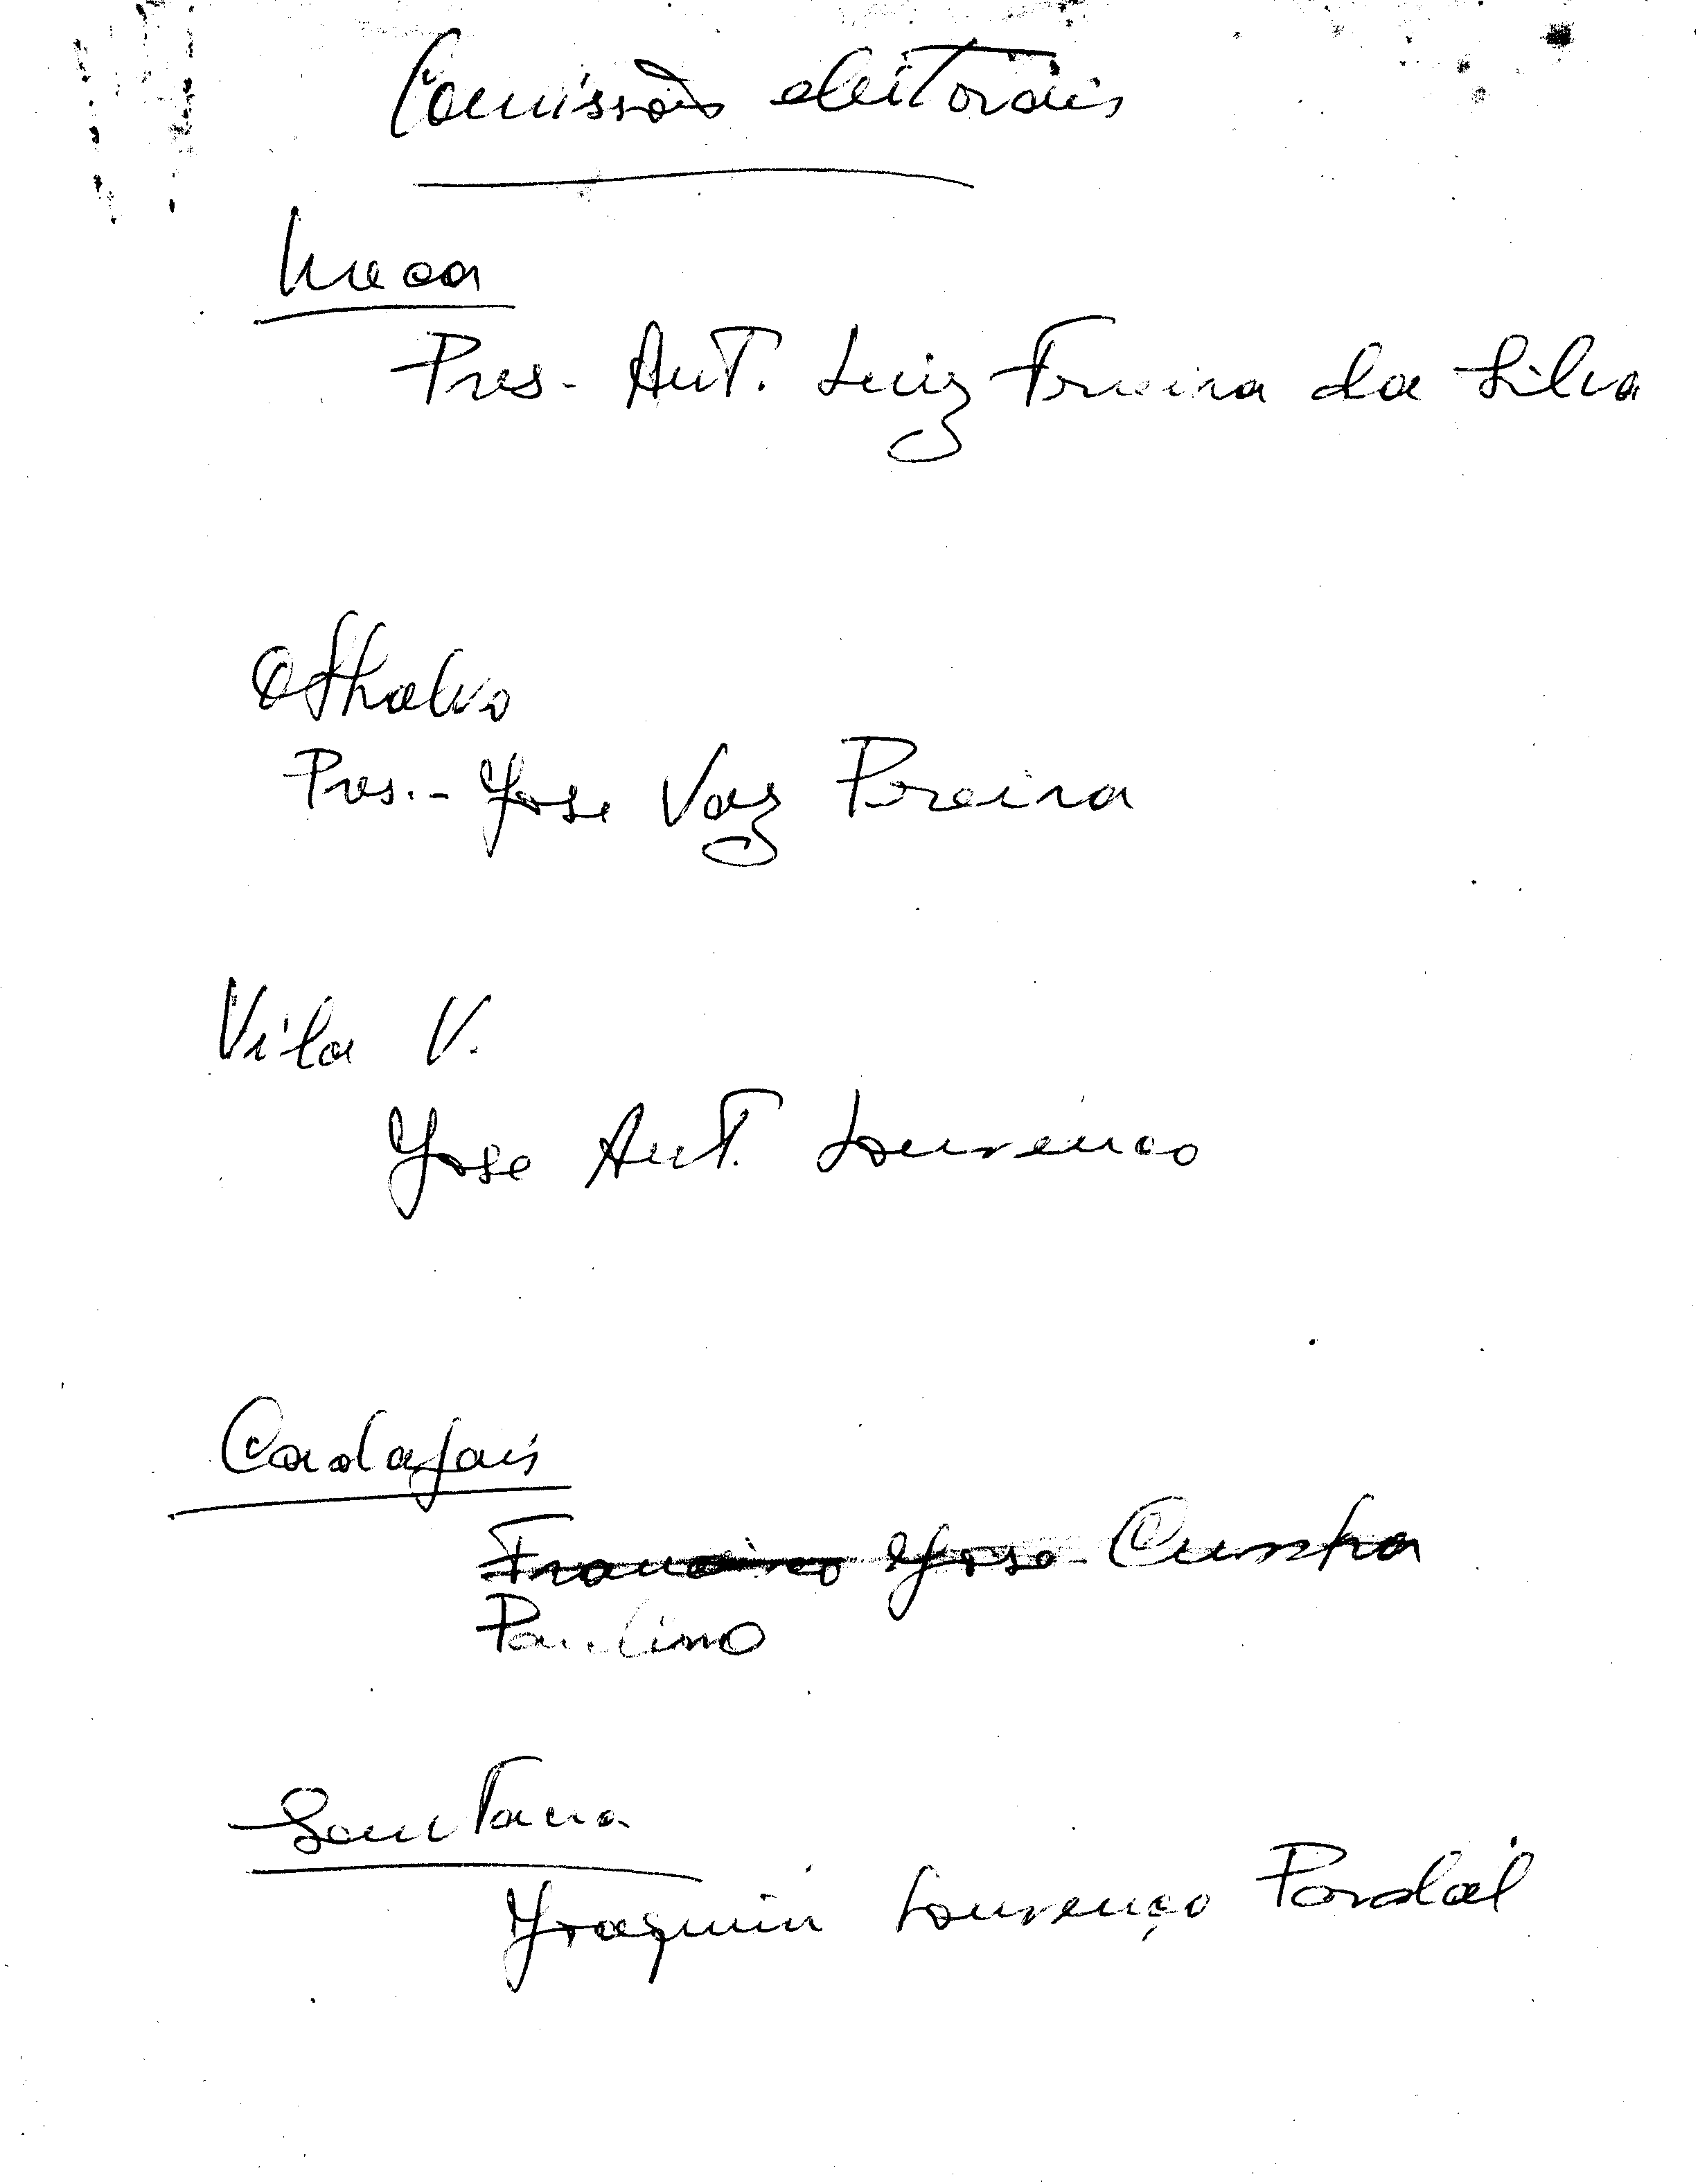 Comissões eleitorais
Meca
Pres. Ant. Luiz Ferreira da Silva
Othalvo
Pres.- Jose Vaz Pereira
Vila V.
Jose Ant. Lourenco
Cadafais
Francisco Jose Cunha
Paulino
Santana
Joaquim Lourenço Pardal